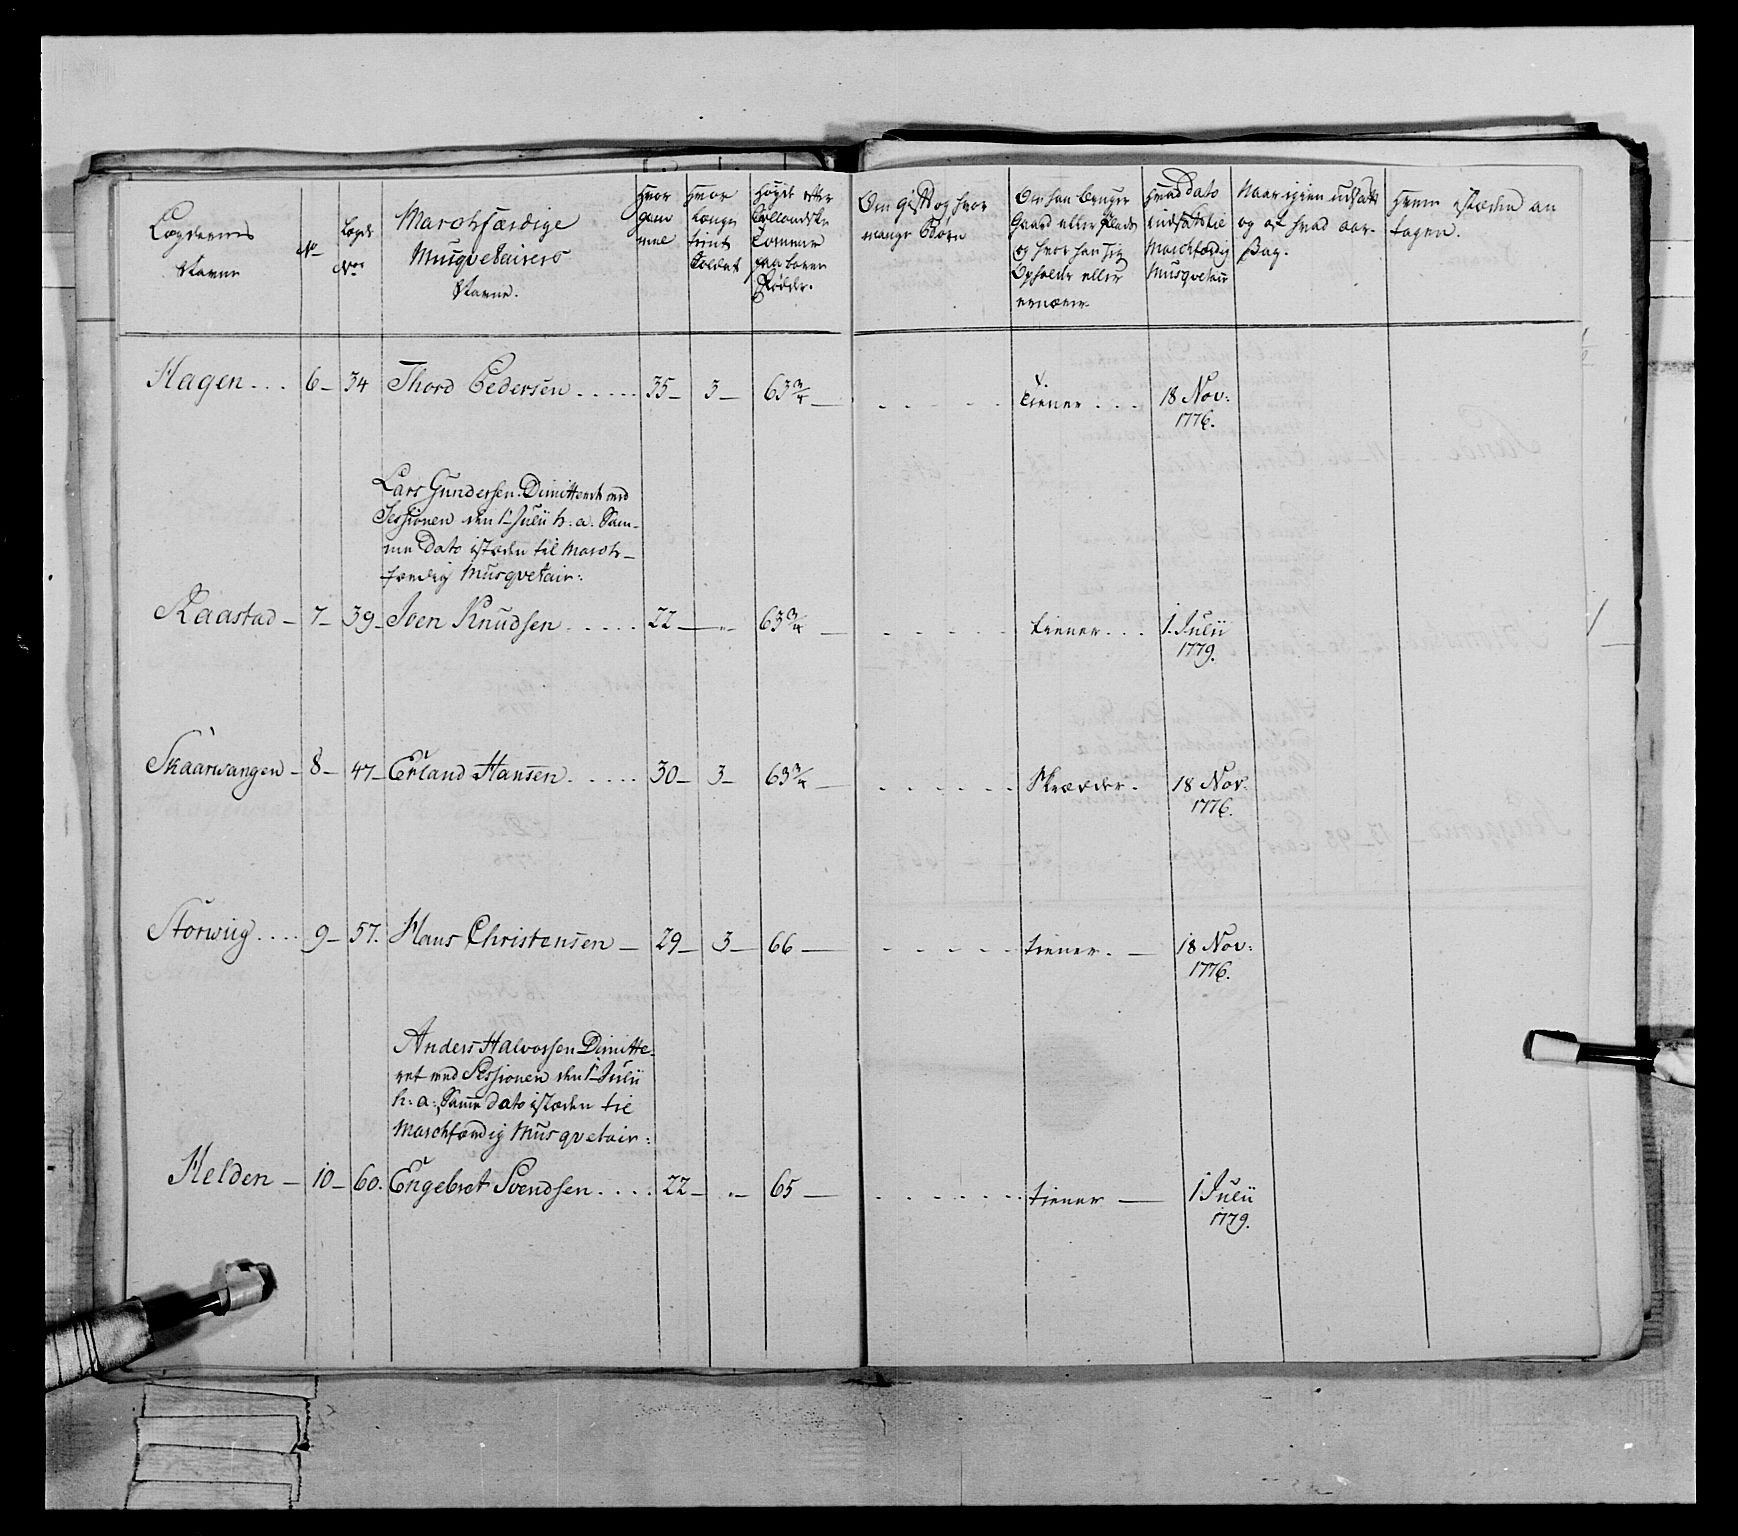 Lægdernes Navne
No
Lægds Noer
Marchfærdige Musqvetairers Navne.
Hvor gammel
Hvor længe tient Soldat
Høyde efter Sællandske Tommer paa bare Fødder.
Om gift og hvor mange Børn
Om han bruger Gaard eller Plads og hvor han sig opholder eller ernærer
Hvad dato indsat til Marchfærdig Musqvetair
Naar igien udsat og af hvad aarsag.
Hvem isteden antagen.
Hagen . . . 6 – 34 Thord Pedersen . . . . . 35 – 3 – 63 3/4 – tiener . . . 18 Nov:
1776.
Lars Gundersen Dimitteret ved
Sessionen den 1te Julii h: a. Sam-
me Dato isteden til March-
færdig Musqvetair:
Raastad – 7 – 39 – Joen Knudsen . . . . . 22 – „ – 63 3/4 – tiener . . . 1. Julii
1779.
Skaarwangen – 8 – 47 – Erland Hansen . . . . . 30 – 3 – 63 3/4 – Skrædder . 18 Nov:
1776.
Storwiig . . . . 9 – 57. Hans Christensen – 29 – 3 – 66 – tiener . – 18 Nov:
1776.
Anders Halvorsen Dimitte-
ret ved Sessionen den 1te Julii
h: a: Samme dato isteden til
Marchfærdig Musqvetair:
Helden – 10 – 60. Engebret Svendsen . . . . 22 – „ – 65 – tiener – 1 Julii
1779.